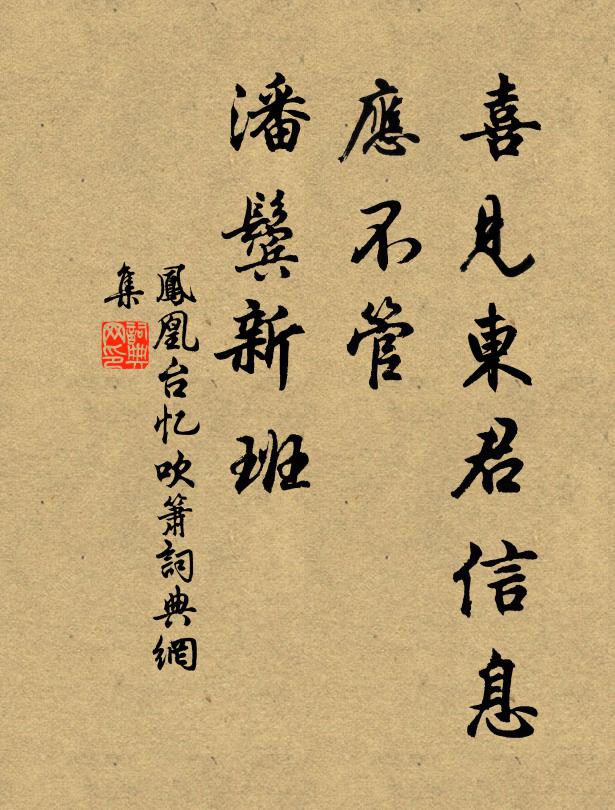 喜見東君信息
應不管
潘鬢新班
鳳凰台忆吹簫詞典網
集
詞典
网印